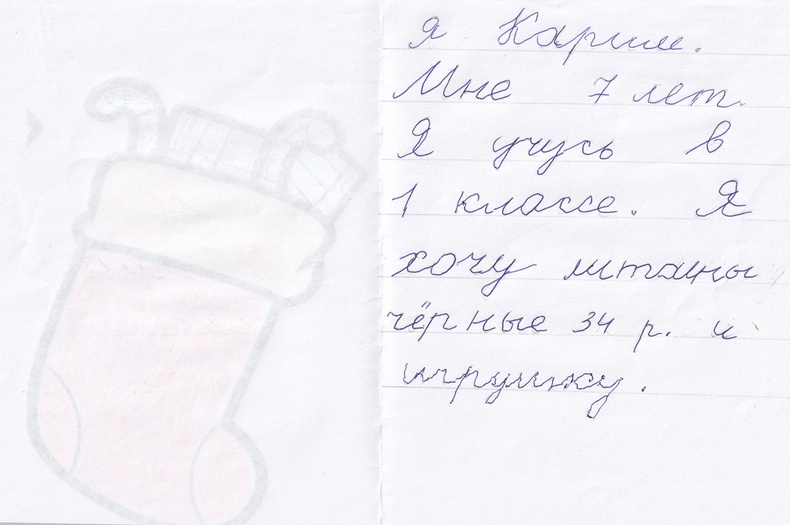 я Карим.
Мне 7 лет.
Я учусь в
1 классе. Я
хочу штаны
чёрные 34 р. и
игрушку.